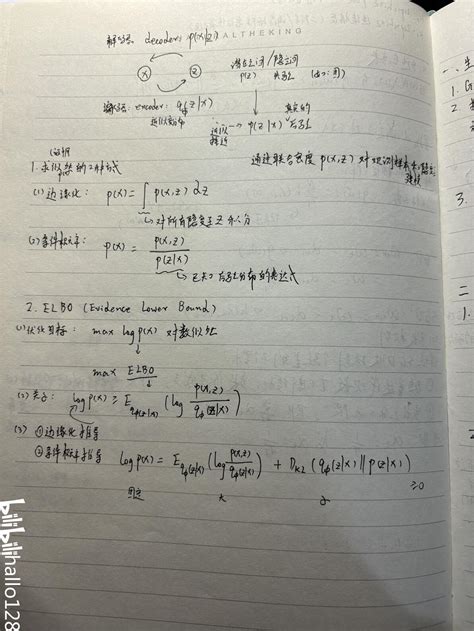 解码器 decoder: p(x|z)
ALTHEKING
x z
潜在空间/隐空间
p(z) 先验
编码器: encoder: qφ(z|x)
近似 → p(z|x) 后验
真实的
通过联合密度 p(x,z) 对观测样本
建模
1. 求似然的2种方式
(1) 边缘化: p(x) = ∫ p(x,z) dz
对所有隐变量 z 积分
(2) 条件概率: p(x) = p(x,z) / p(z|x)
后验分布的表达式
2. ELBO (Evidence Lower Bound)
(1) 优化目标: max log p(x) 对数似然
↓
max ELBO
(2) 关于: log p(x) ≥ E qφ(z|x) (log p(x,z) / qφ(z|x))
(3) ① 边缘化推导
② 条件概率推导 log p(x) = E qφ(z|x) (log p(x,z) / qφ(z|x)) + DKL (qφ(z|x) || p(z|x))
固定 大 小 ≥0
一、生
1. G
2.
3.
二
1.
bilibili
hallo128